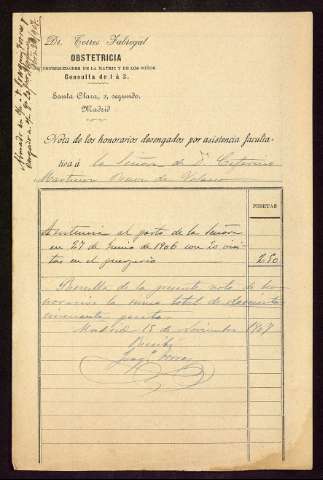 Dr. Torre Fabregat
OBSTETRICIA
Y ENFERMEDADES DE LA MATRIZ Y DE LOS NIÑOS
Consulta de 1 á 3.
Santa Clara, 7, segundo.
Madrid
Nota de los honorarios devengados por asistencia faculta-
tiva á la Señora de Dn
Martinez
PESETAS
Asistencia al parto de la Señora
en 27 de Junio de 1906 con 20 visi-
tas en el puerperio 250
de la presente nota de ho-
norarios la suma total de doscientas
cincuenta pesetas
Madrid 15 de Noviembre 1907
Recibí